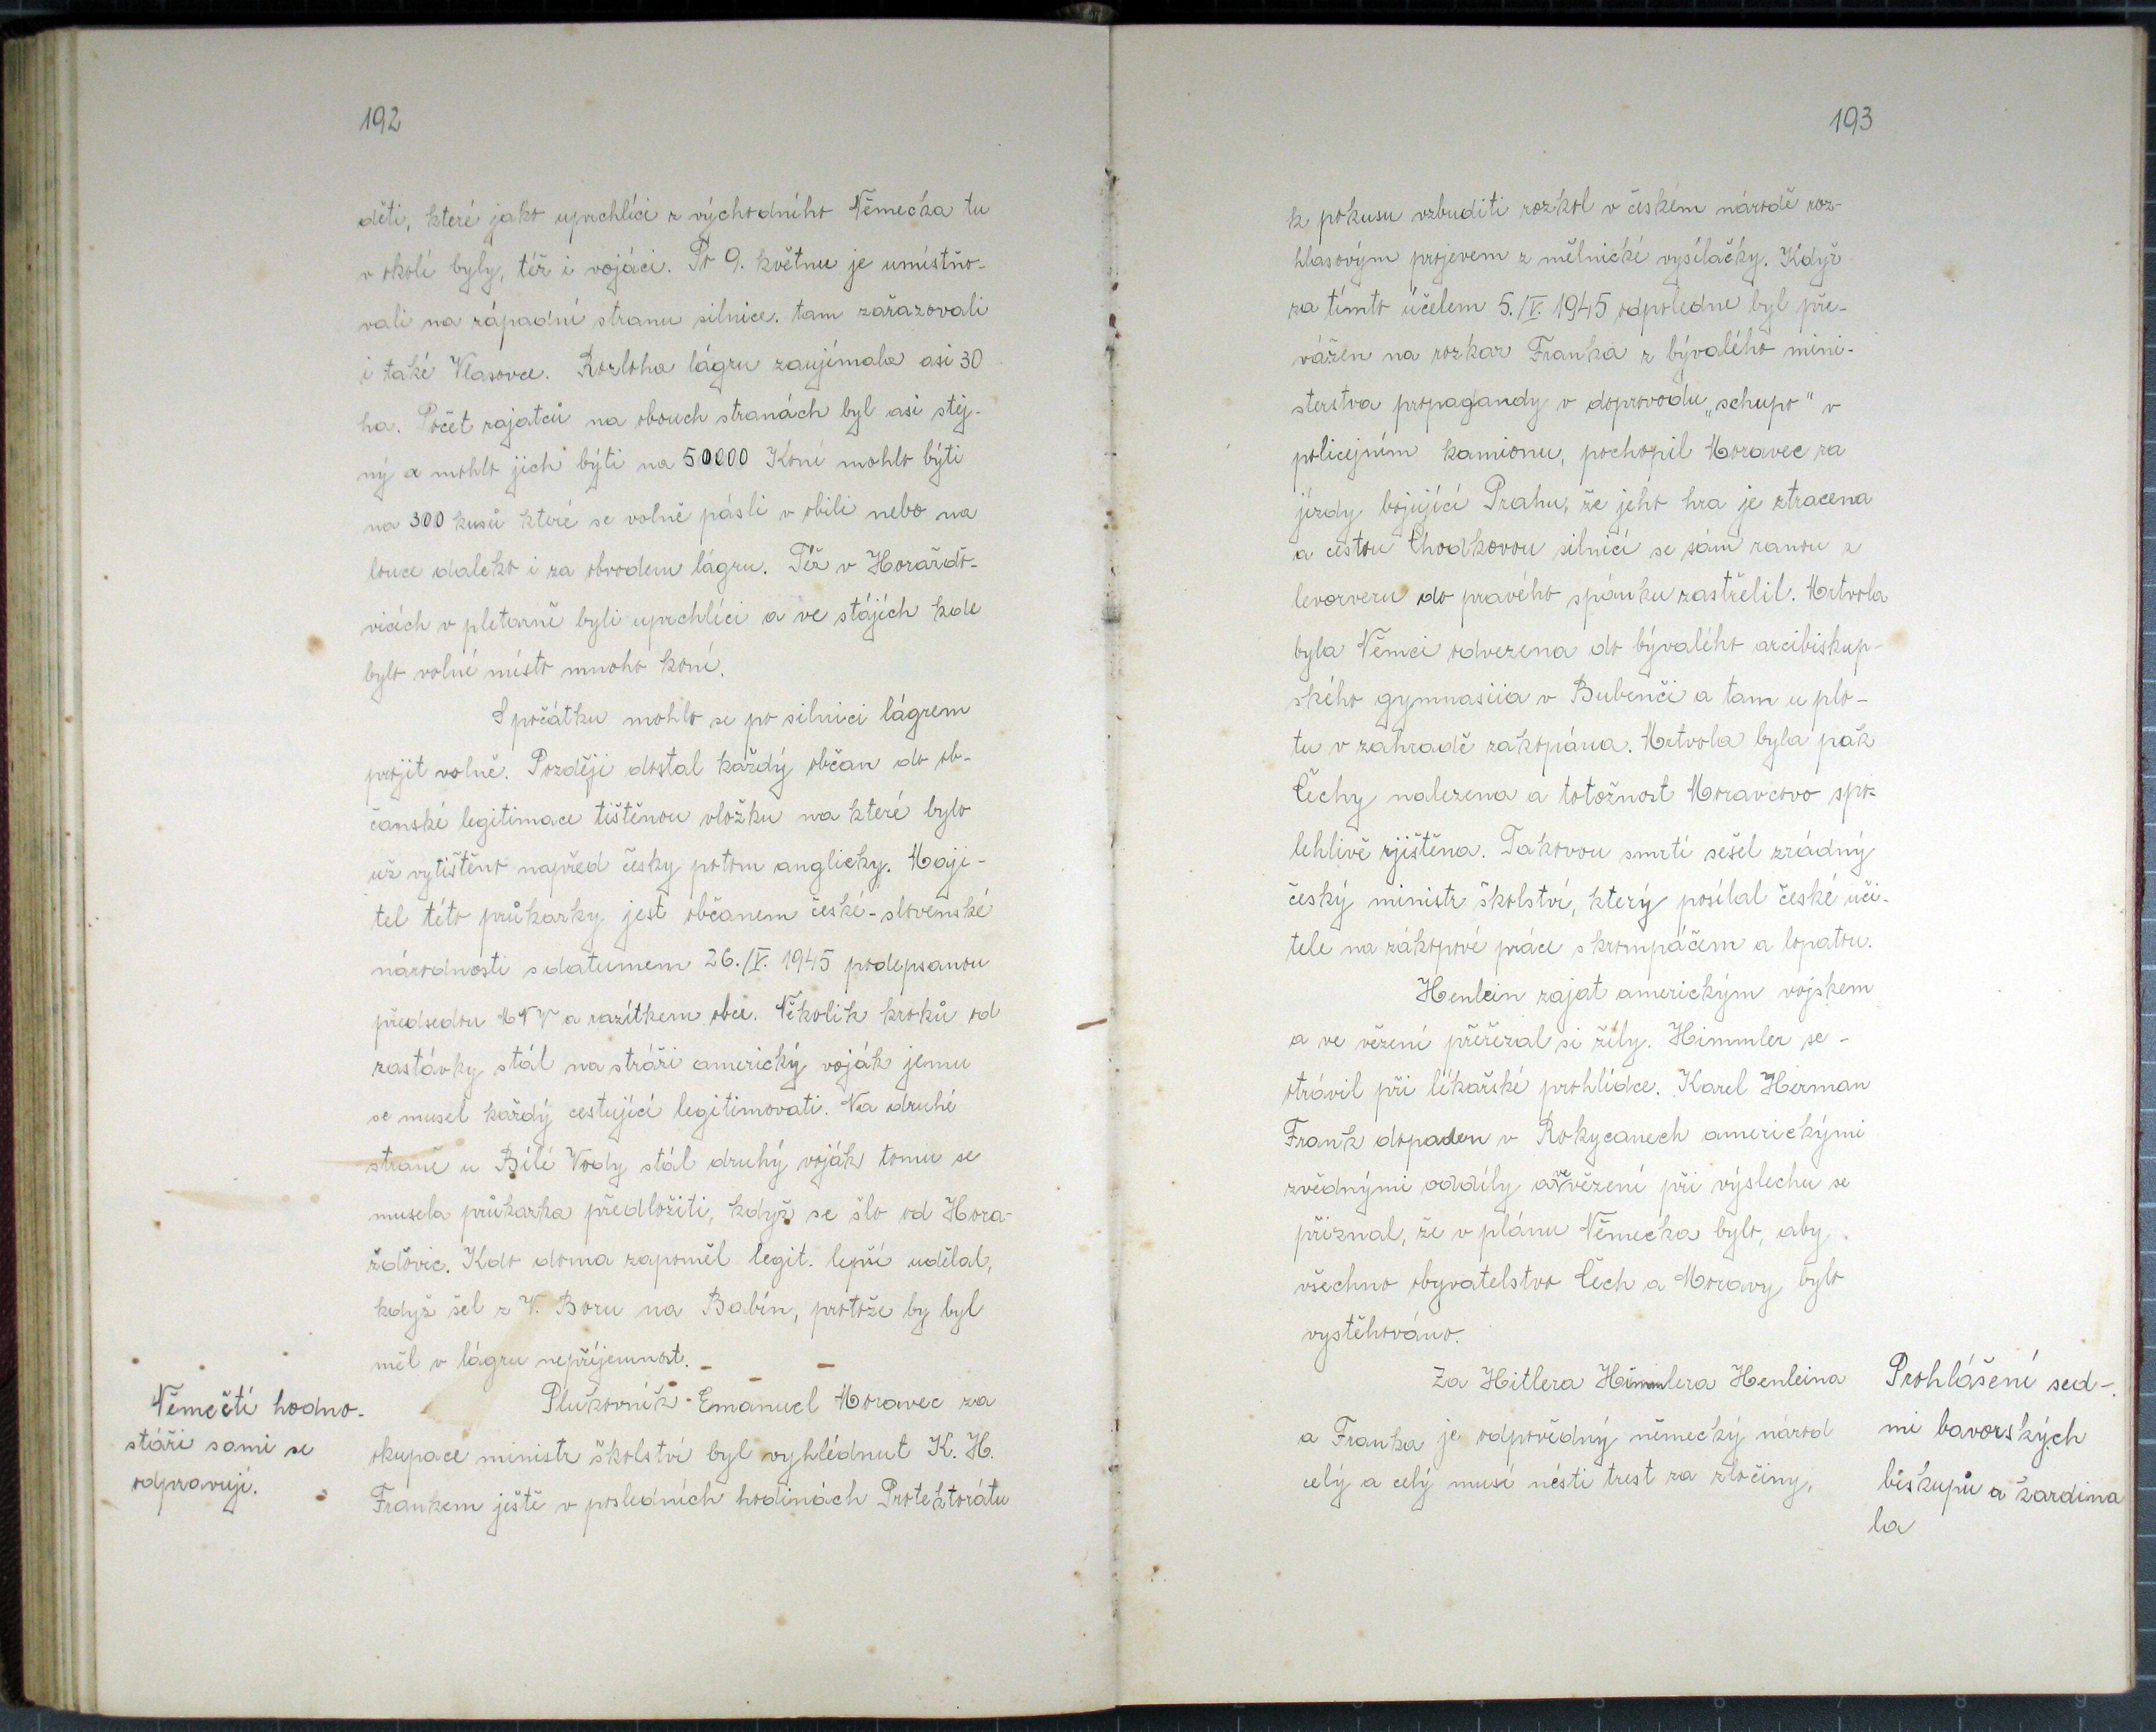 192
děti, které jako uprchlíci z východního Německa tu
v okolí byly, též i vojáci. Po 9. květnu je umístňo-
vali na západní stranu silnice. tam zařazovali
i také Vlasovce. Rozloha lágru zaujímala asi 30
ha. Počet zajatců na obouch stranách byl asi stej-
ný a mohlo jich býti na 50000 Koní mohlo býti
na 300 kusů které se volně pásli v obilí nebo na
louce daleko i za obvodem lágru. Též v Horaždo-
vicích v pletarně byli uprchlíci a ve stájích kde
bylo volné místo mnoho koní.
S počátku mohlo se po silnici lágrem
projít volně. Později dostal každý občan do ob-
čanské legitimace tištěnou vložku na které bylo
už vytištěno napřed česky potom anglicky. Maji-
tel této průkazky jest občanem české-slovenské
národnosti s datumem 26./V. 1945 podepsanou
předsedou MNV a razítkem obce. Několik kroků od
zastávky stál na stráži americký voják jemu
se musel každý cestující legitimovati. Na druhé
straně u Bílé Vody stál druhý voják tomu se
musela průkazka předložiti, když se šlo od Hora-
žďovic. Kdo doma zapoměl legit. lepší udělal,
když šel z V. Boru na Babín, protože by byl
měl v lágru nepříjemnost.
Němečtí hodno-
stáři sami se
odpravují.
Plukovník Emanuel Moravec za
okupace ministr školství byl vyhlédnut K. H.
Frankem ještě v posledních hodinách Protektorátu
193
k pokusu vzbuditi rozkol v českém národě roz-
hlasovým projevem z mělnické vysílačky. Když
za tímto účelem 5./V. 1945 odpoledne byl pře-
vážen na rozkaz Franka z bývalého mini-
sterstva propagandy v doprovodu „schupo" v
policejním kamionu, pochopil Moravec za
jízdy bojující Prahu, že jeho hra je ztracena
a cestou Chodkovou silnicí se sám ranou z
levorveru do pravého spánku zastřelil. Mrtvola
byla Němci odvezena do bývalého arcibiskup-
ského gymnasiia v Bubenči a tam u plo-
tu v zahradě zakopána. Mrtvola byla pak
Čechy nalezena a totožnost Moravcovo spo-
lehlivě zjištěna. Takovou smrtí sešel zrádný
český ministr školství, který posílal české uči-
tele na zákopové práce s krompáčem a lopatou.
Henlein zajat americkým vojskem
a ve vězení přeřezal si žíly. Himmler se-
otrávil při lékařské prohlídce. Karel Herman
Frank dopaden v Rokycanech americkými
zvědnými oddíly a ve vězení při výslechu se
přiznal, že v plánu Německa bylo, aby
všechno obyvatelstvo Čech a Moravy bylo
vystěhováno.
Za Hitlera Himmlera Henleina
a Franka je odpovědný německý národ
celý a celý musí nésti trest za zločiny,
Prohlášení sed-
mi bavorských
biskupů a kardina
la